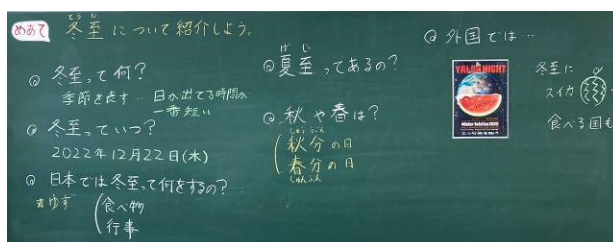 めあて
とうじ
冬至について紹介しよう。
◎冬至って何？
季節を表す…日が出てる時間が
一番短い
◎冬至っていつ？
2022年12月22日(木)
◎日本では冬至って何をするの？
ゆず
食べ物
行事
げし
◎夏至ってあるの？
◎秋や春は？
しゅうぶん
秋分の日
春分の日
しゅんぶん
◎外国では…
YALDA NIGHT
冬至に
スイカ
食べる国も